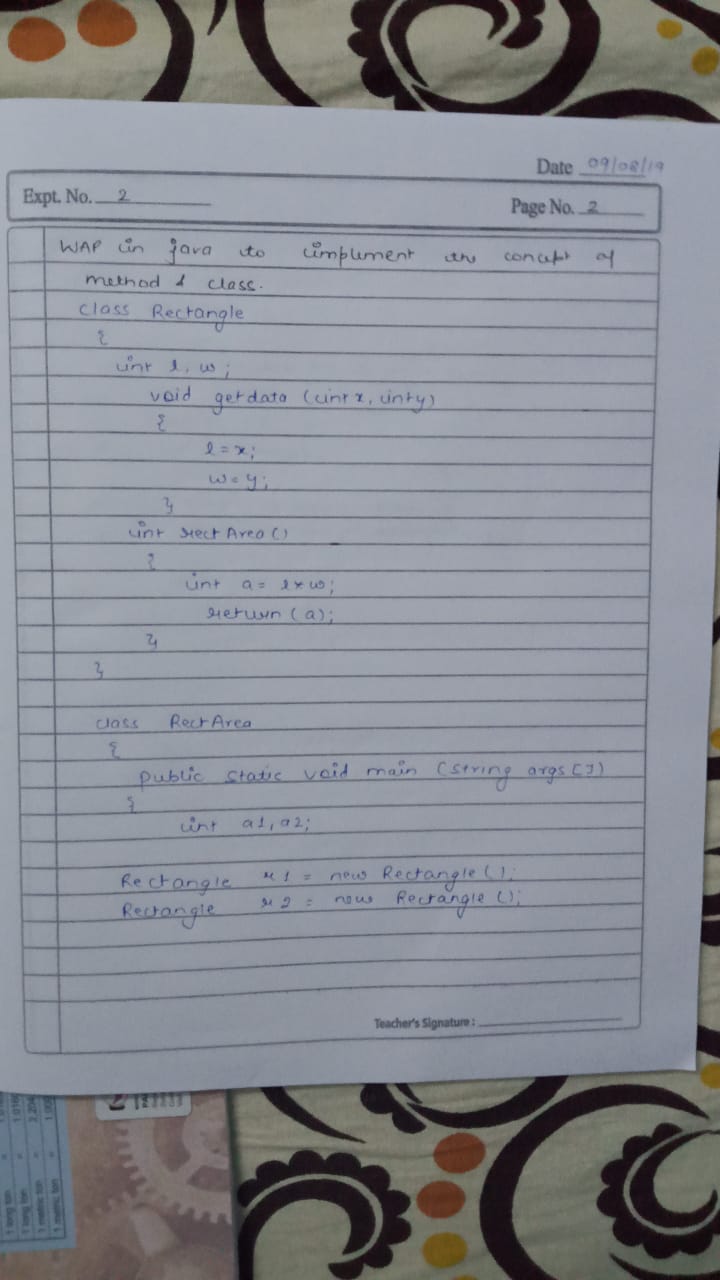 Date 09/08/19
Expt. No. 2
Page No. 2
WAP in java to implement the concept of
method & class.
class Rectangle
{
int l, w;
void getdata (int x, int y)
{
l = x;
w = y;
}
int rectArea ()
{
int a = l * w;
return (a);
}
}
class RectArea
{
public static void main (string args [])
{
int a1, a2;
Rectangle r1 = new Rectangle ();
Rectangle r2 = new Rectangle ();
Teacher's Signature :
1 long ton =
1 long ton = 1.016
1 metric ton = 2.204
1 metric ton =